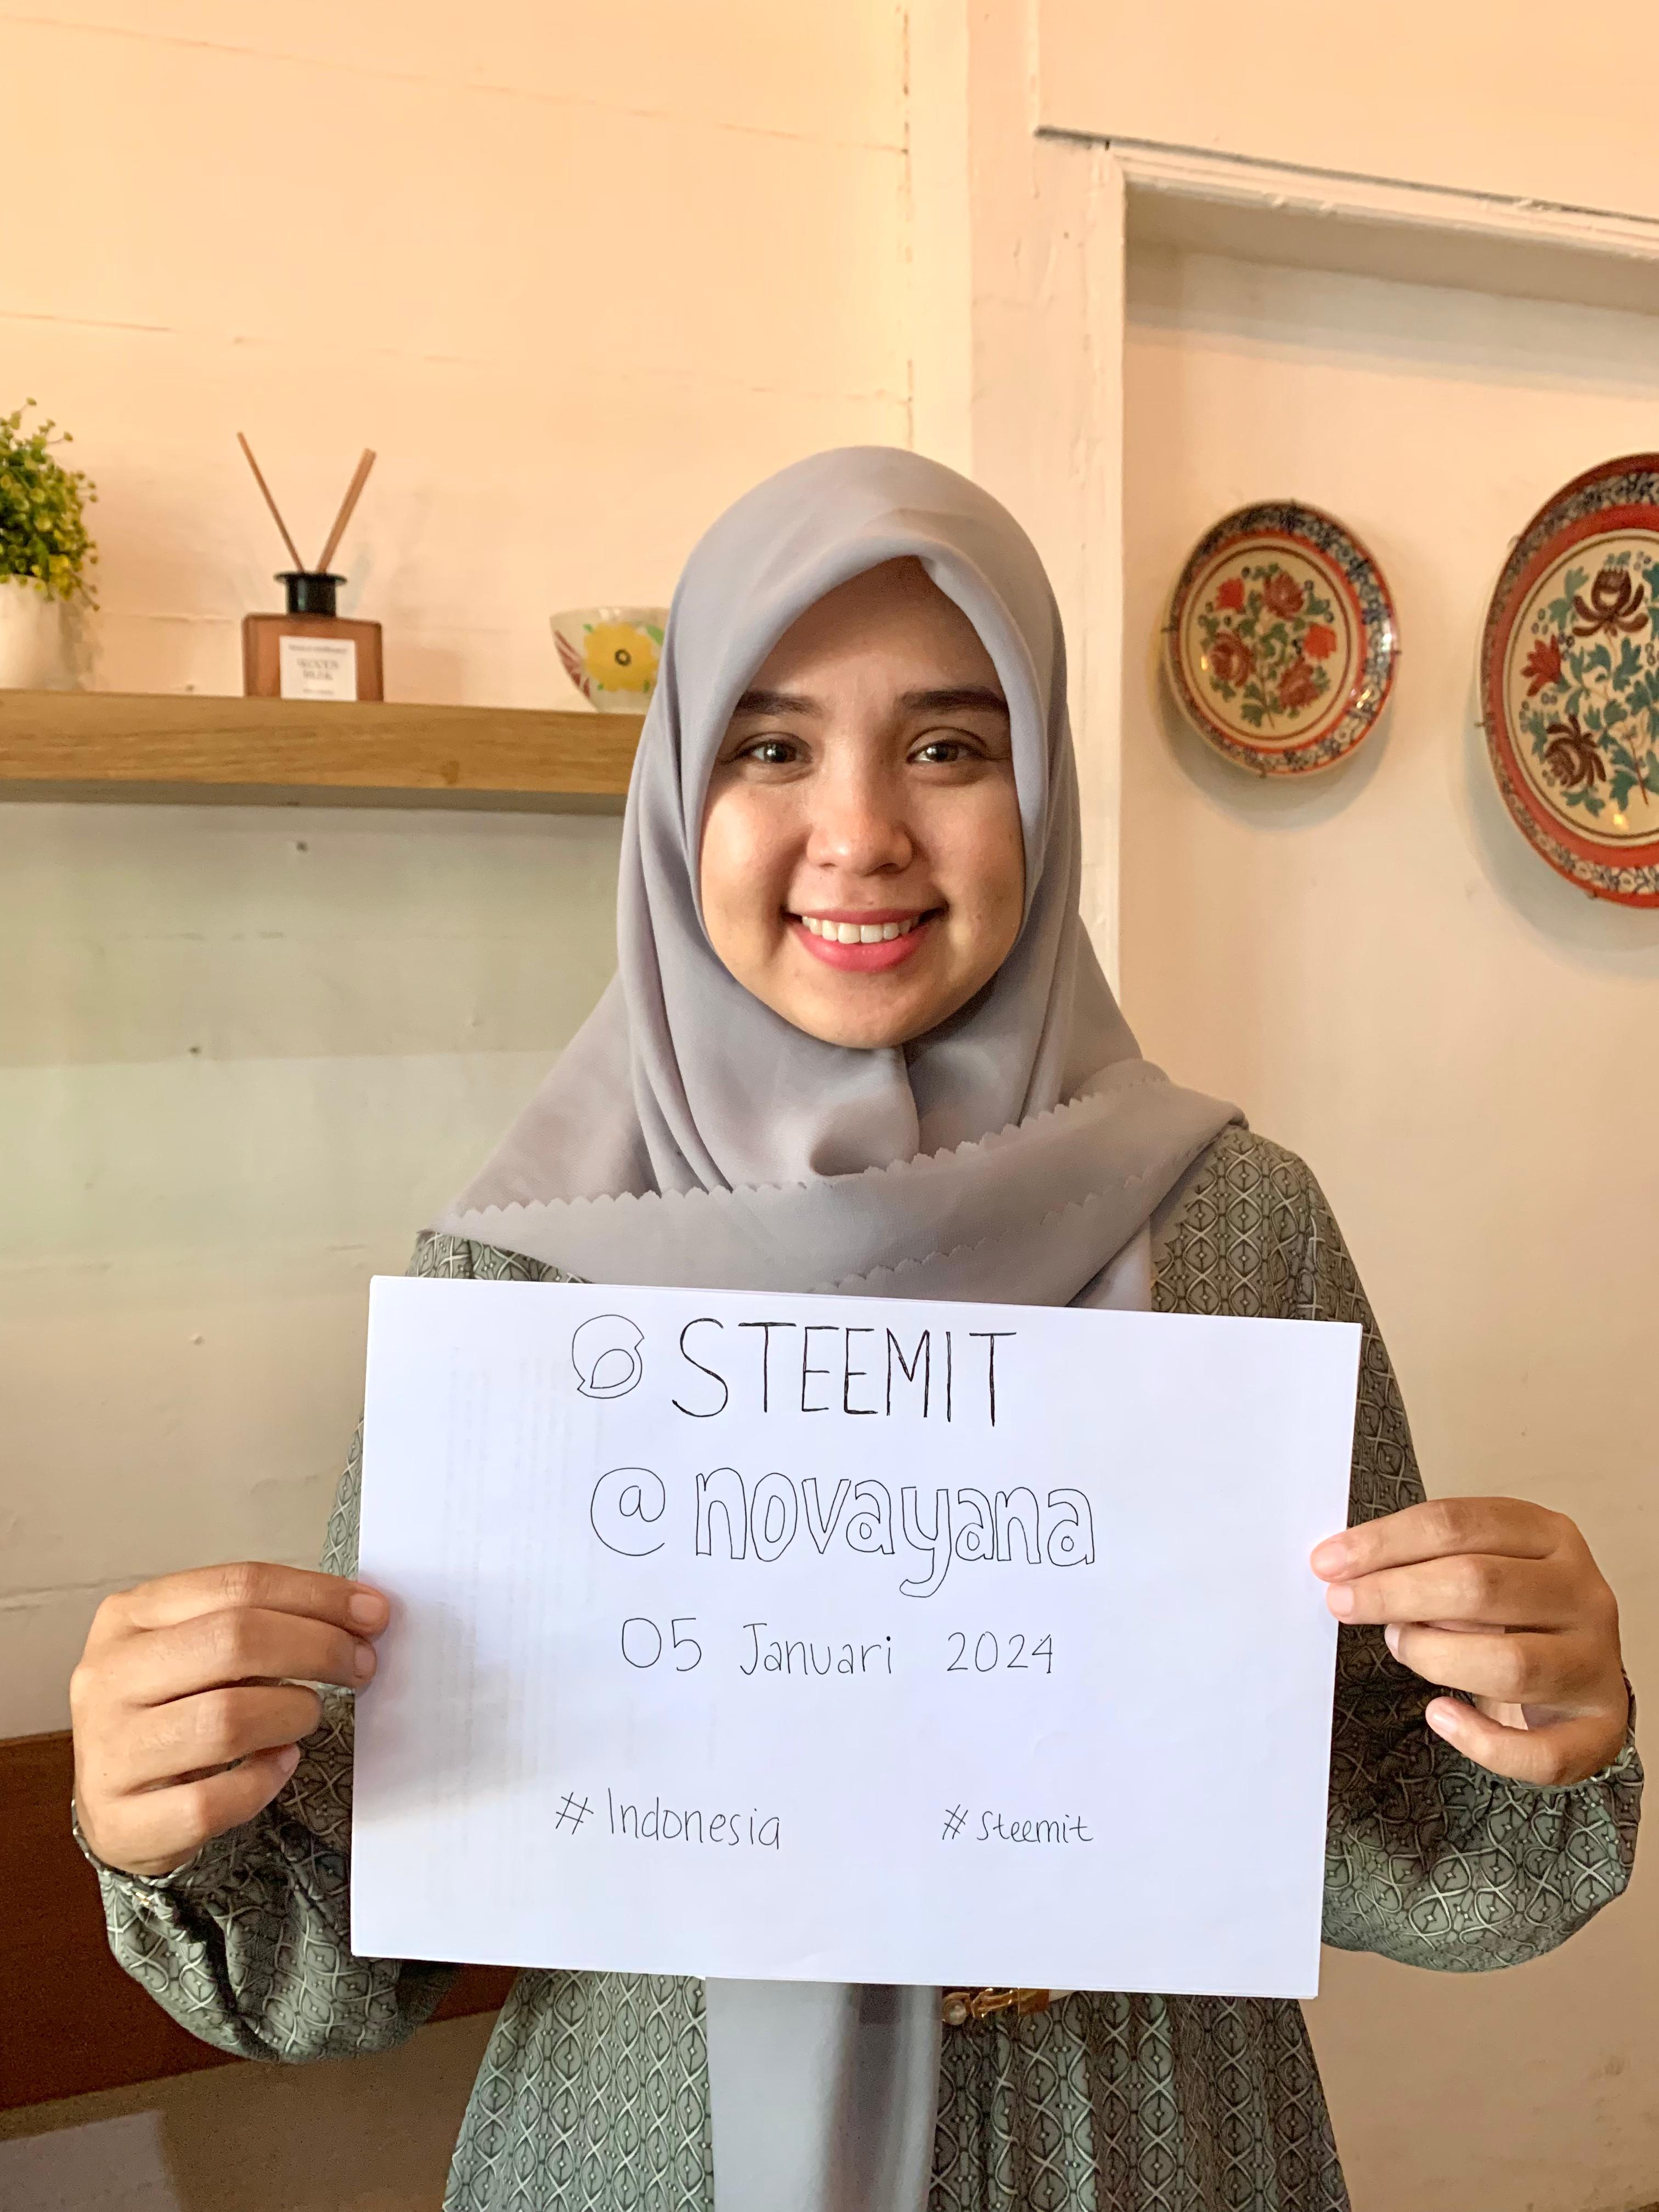 STEEMIT
@novayana
05 Januari 2024
#Indonesia #Steemit